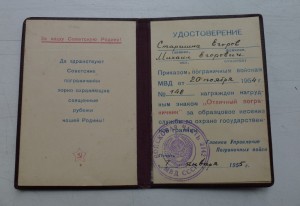 За нашу Советскую Родину!
Да здравствуют
Советские
пограничники
зорко охраняющие
священные
рубежи
нашей Родины!
УДОСТОВЕРЕНИЕ
Старшина Егоров
Михаил Егорович
Приказом пограничных войск
МВД от 1954 г.
№ награжден нагруд-
ным знаком „Отличный погра-
ничник" за образцовое несение
службы по охране государствен-
ной границы
Начальник Управления
Пограничных войск
января 1955 г.